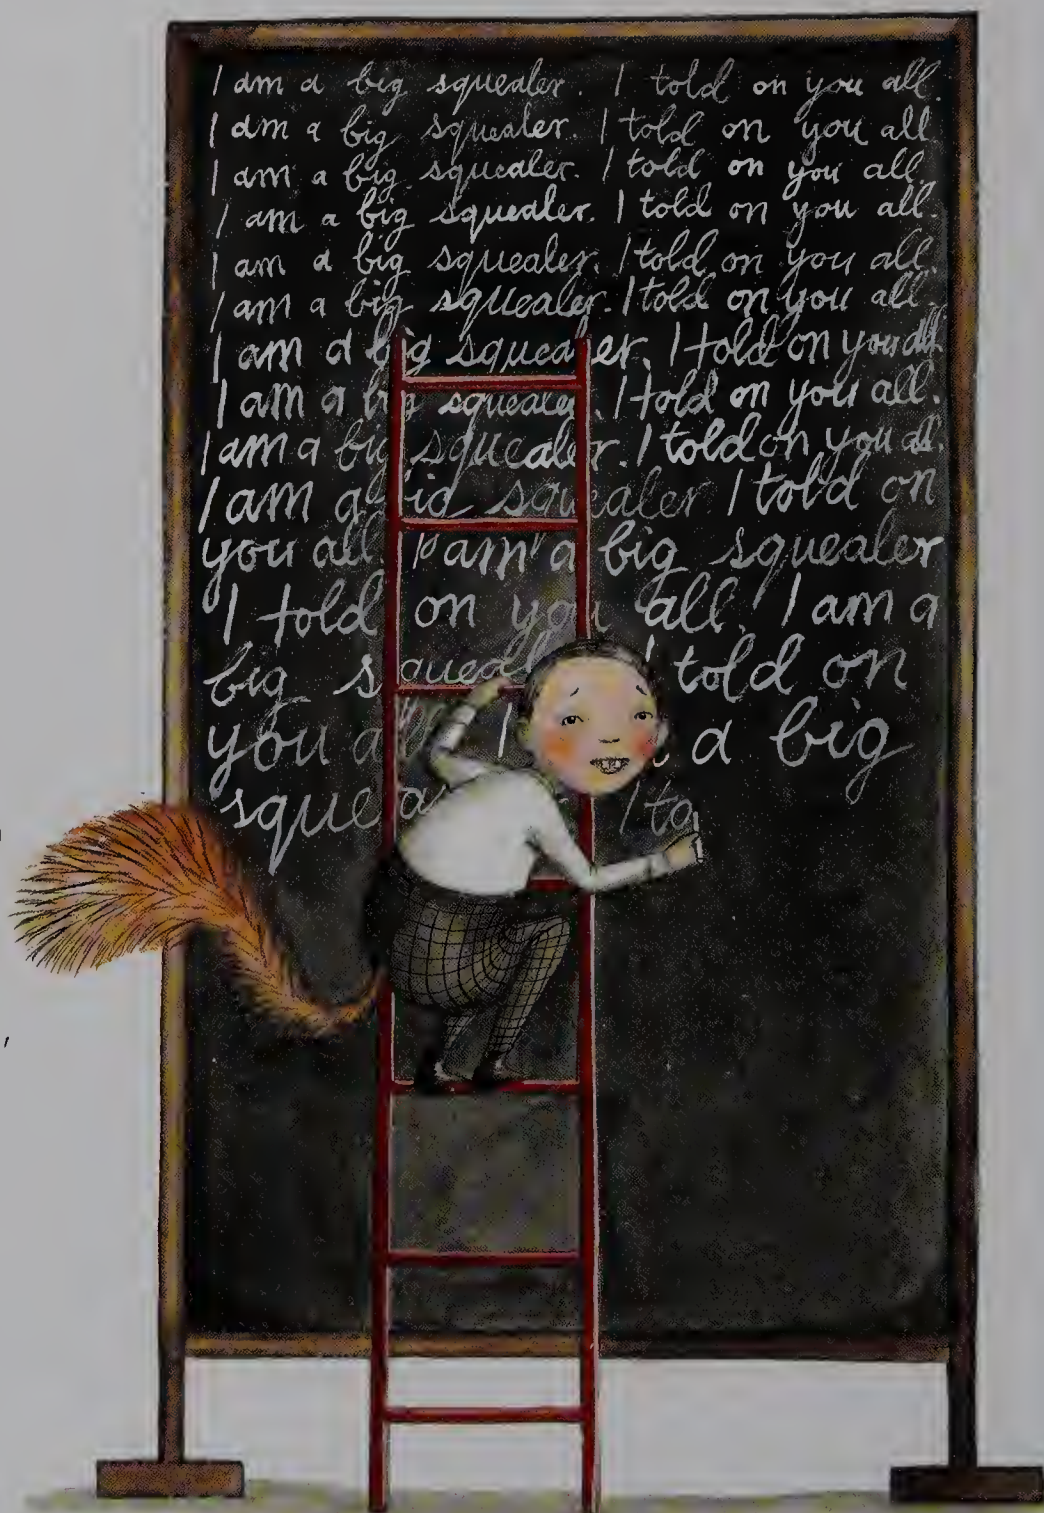 I am a big squealer. I told on you all.
I am a big squealer. I told on you all.
I am a big squealer. I told on you all.
I am a big squealer. I told on you all.
I am a big squealer. I told on you all.
I am a big squealer. I told on you all.
I am a big squealer. I told on you all.
I am a big squealer. I told on you all.
I am a big squealer. I told on you all.
I am a big squealer I told on
you all I am a big squealer
I told on you all. I am a
big squeal I told on
you all I a big
squea I to